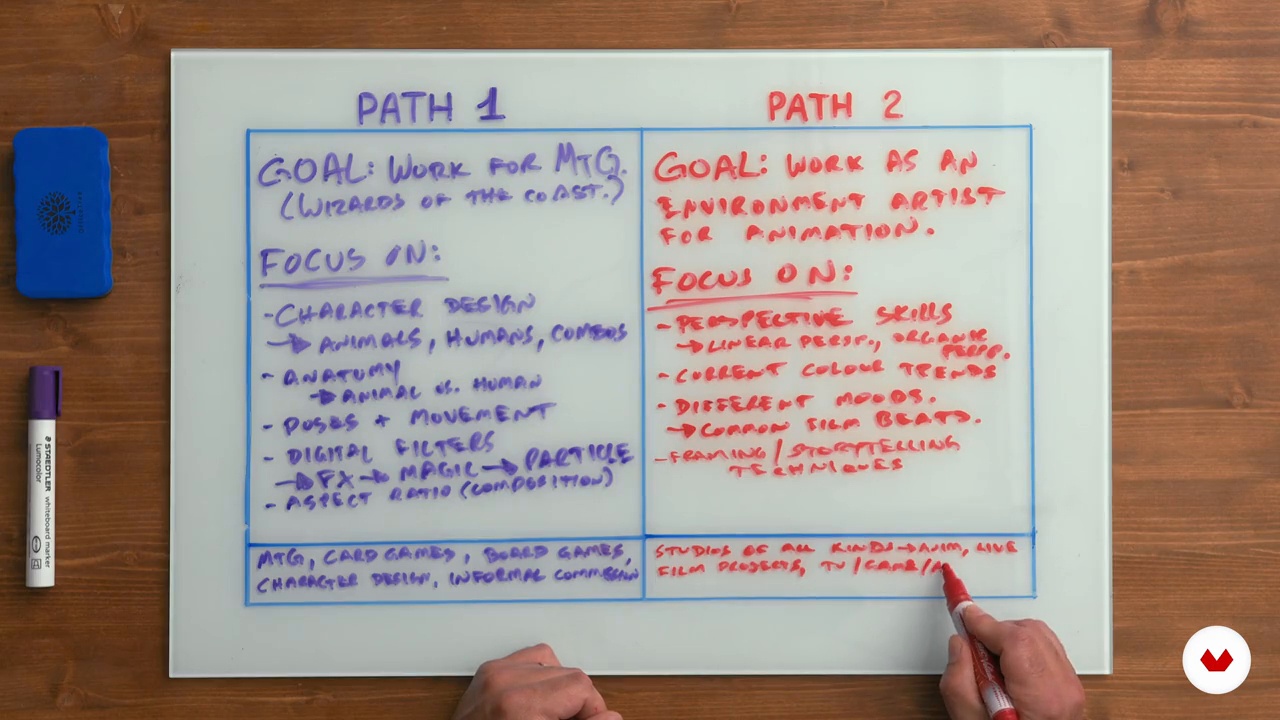 PATH 1
GOAL: WORK FOR MTG.
(WIZARDS OF THE COAST.)
FOCUS ON:
- CHARACTER DESIGN
→ ANIMALS, HUMANS, COMBOS
- ANATOMY
→ ANIMAL VS. HUMAN
- POSES + MOVEMENT
- DIGITAL FILTERS
→ FX → MAGIC → PARTICLE
- ASPECT RATIO (COMPOSITION)
MTG, CARD GAMES, BOARD GAMES,
CHARACTER DESIGN, INFORMAL COMMISSION
PATH 2
GOAL: WORK AS AN
ENVIRONMENT ARTIST
FOR ANIMATION.
FOCUS ON:
- PERSPECTIVE SKILLS
→ LINEAR PERSP., ORGANIC
PERSP.
- CURRENT COLOUR TRENDS
- DIFFERENT MOODS.
→ COMMON FILM BEATS.
- FRAMING/STORYTELLING
TECHNIQUES
STUDIOS OF ALL KINDS → ANIM, LIVE
FILM PROJECTS, TV/GAME/
STAEDTLER
Lumocolor
whiteboard marker